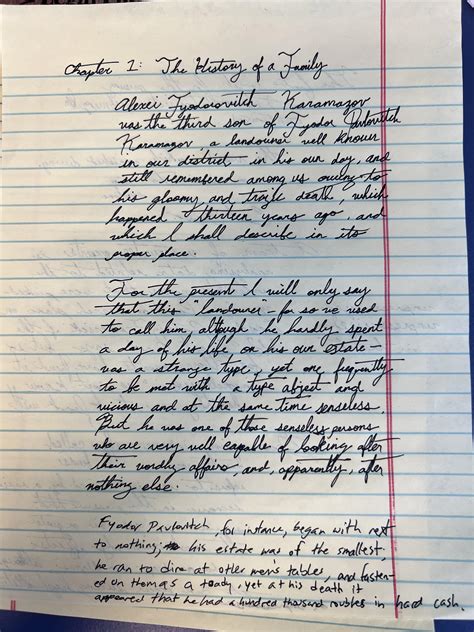 Chapter 1: The History of a Family
Alexei Fyodorovitch Karamazov
was the third son of Fyodor Pavlovitch
Karamazov a landowner well known
in our district in his own day, and
still remembered among us owing to
his gloomy and tragic death, which
happened thirteen years ago, and
which I shall describe in its
proper place.
For the present I will only say
that this "landowner" - for so we used
to call him, although he hardly spent
a day of his life on his own estate-
was a strange type, yet one frequently
to be met with a type abject and
vicious and at the same time senseless.
But he was one of those senseless persons
who are very well capable of looking after
their wordly affairs and, apparently, after
nothing else.
Fyodor Pavlovitch, for instance, began with next
to nothing; his estate was of the smallest,
he ran to dine at other men's tables, and fasten-
ed on them as a toady, yet at his death it
appeared that he had a hundred thousand roubles in hard cash.